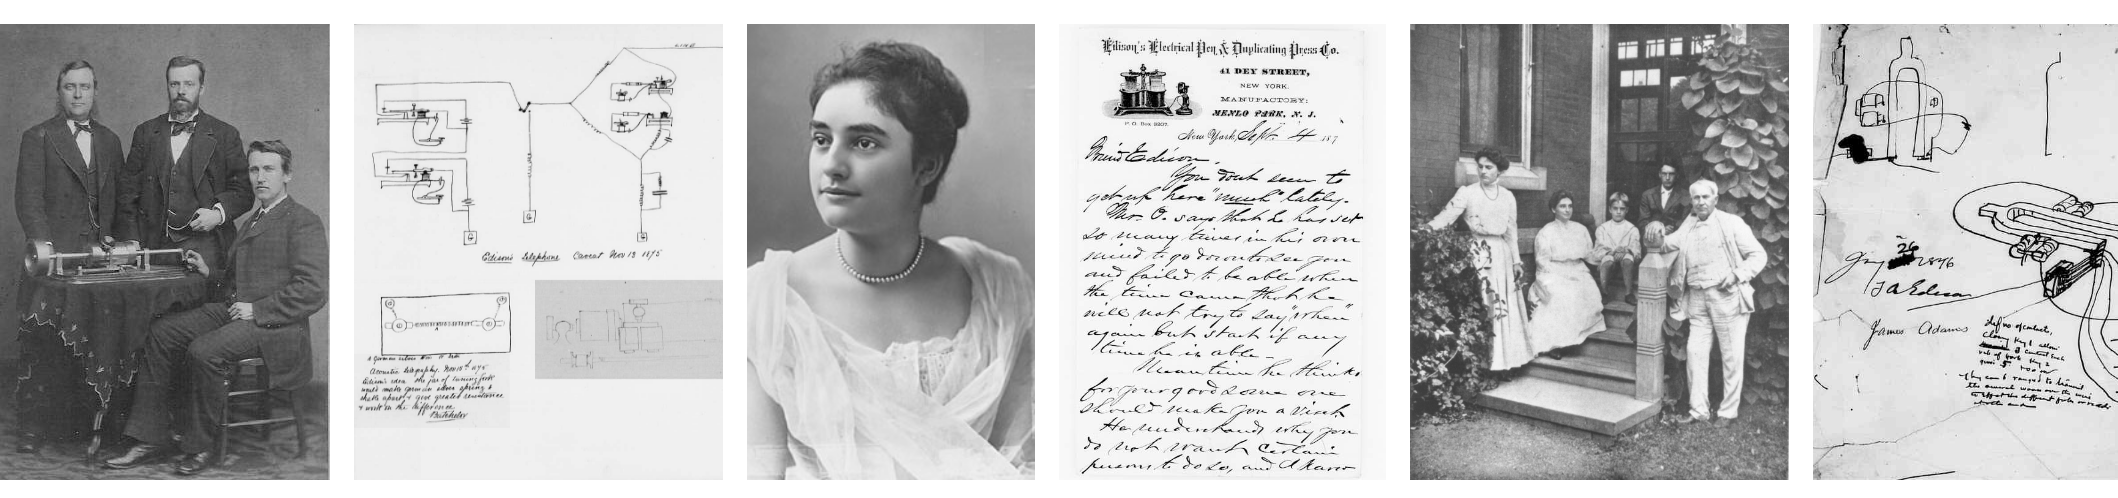 Edison's Telephone Caveat Nov 12 1875
Acoustic Telegraphy. Nov 12th 1875
Edison's idea the jar of tuning fork
would make german silver spring &
shake apart & give greater resistance
& work on the difference
Batchelor
Edison's Electrical Pen & Duplicating Press Co.
41 DEY STREET,
NEW YORK.
MANUFACTORY:
MENLO PARK, N. J.
P. O. Box 3207.
New York, Sept. 4 187
Friend Edison.
You dont seem to
get up here "much" lately.
Mr. O. says that he has set
so many times in his own
mind to go down to see you
and failed to be able when
the time came that he
will not try to say "when"
again but start if any
time he is able.
Meantime he thinks
for your good some one
should make you a visit
He understands why you
do not want certain
persons to do so, and I know
26
1876
T A Edison
James Adams